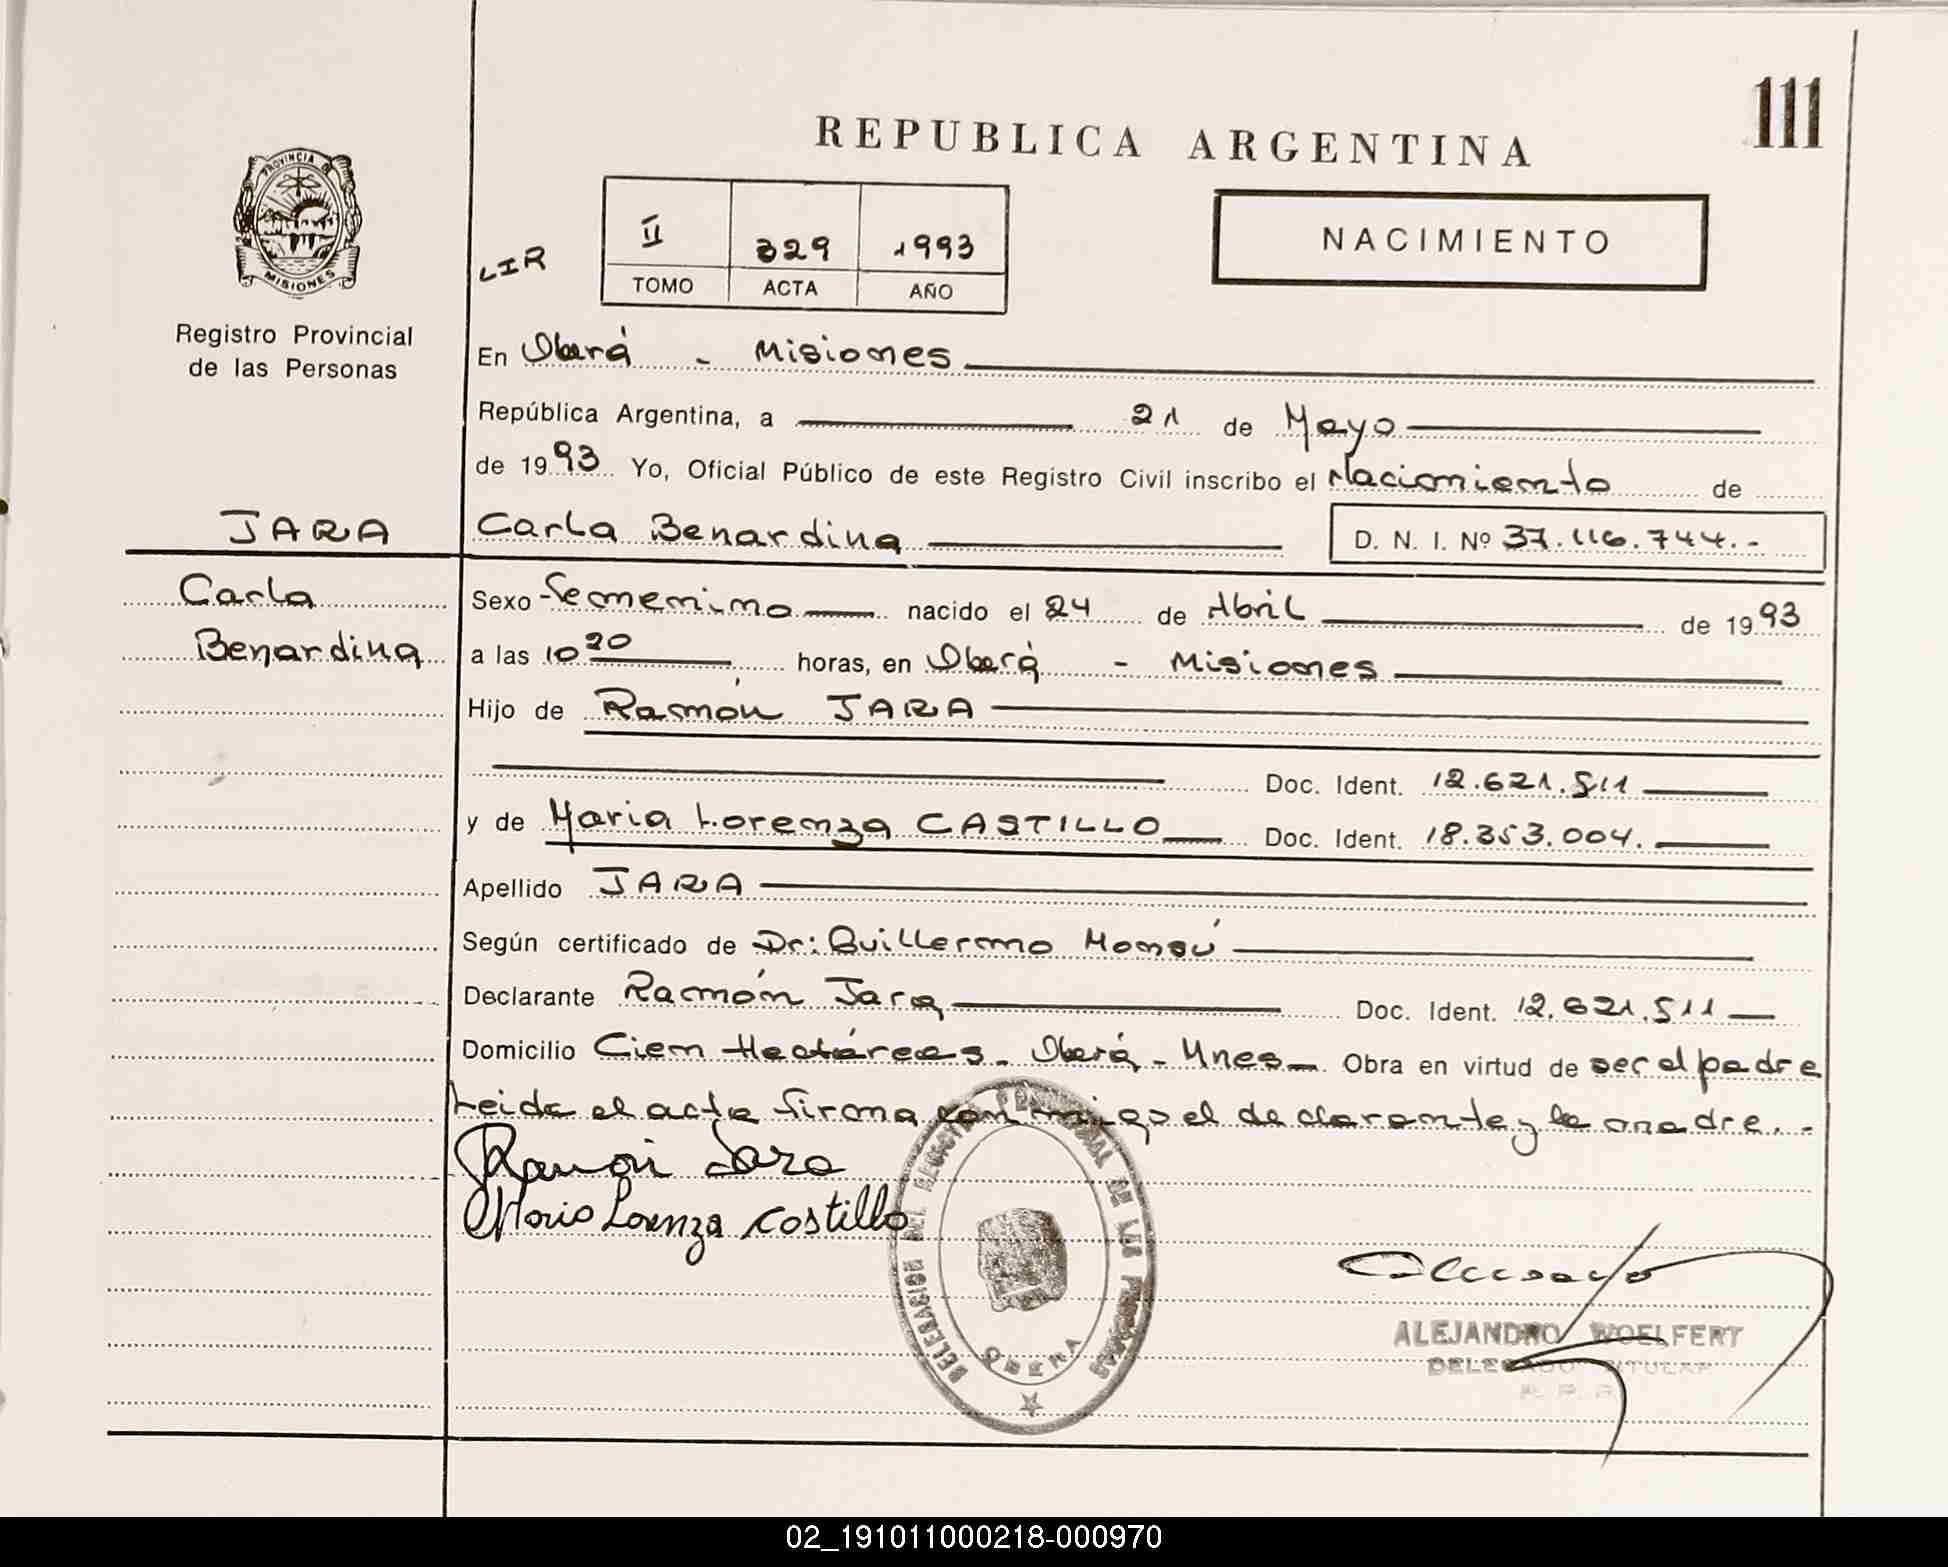 111
REPUBLICA ARGENTINA
PROVINCIA DE
MISIONES
Registro Provincial
de las Personas
LIR
II 329 1993
TOMO ACTA AÑO
NACIMIENTO
En Oberá - Misiones
República Argentina, a 21 de Mayo
de 1993 Yo, Oficial Público de este Registro Civil inscribo el Nacimiento de
JARA Carla Benardina D. N. I. Nº 37.116.744.-
Carla
Benardina
Sexo Femenino nacido el 24 de Abril de 1993
a las 10 20 horas, en Oberá - Misiones
Hijo de Ramón JARA
Doc. Ident. 12.621.511
y de Maria Lorenza CASTILLO Doc. Ident. 18.353.004.
Apellido JARA
Según certificado de Dr: Guillermo Monsú
Declarante Ramón Jara Doc. Ident. 12.621.511
Domicilio Cien Hectáreas - Oberá - Mnes Obra en virtud de ser el padre
Leida el acta firma conmigo el declarante y la madre.-
Ramon Jara
Maria Lorenza Castillo
DELEGACION DEL REGISTRO PROVINCIAL DE LAS PERSONAS
OBERA
ALEJANDRO WOELFERT
DELEGADO TITULAR
R. P. P.
02_191011000218-000970